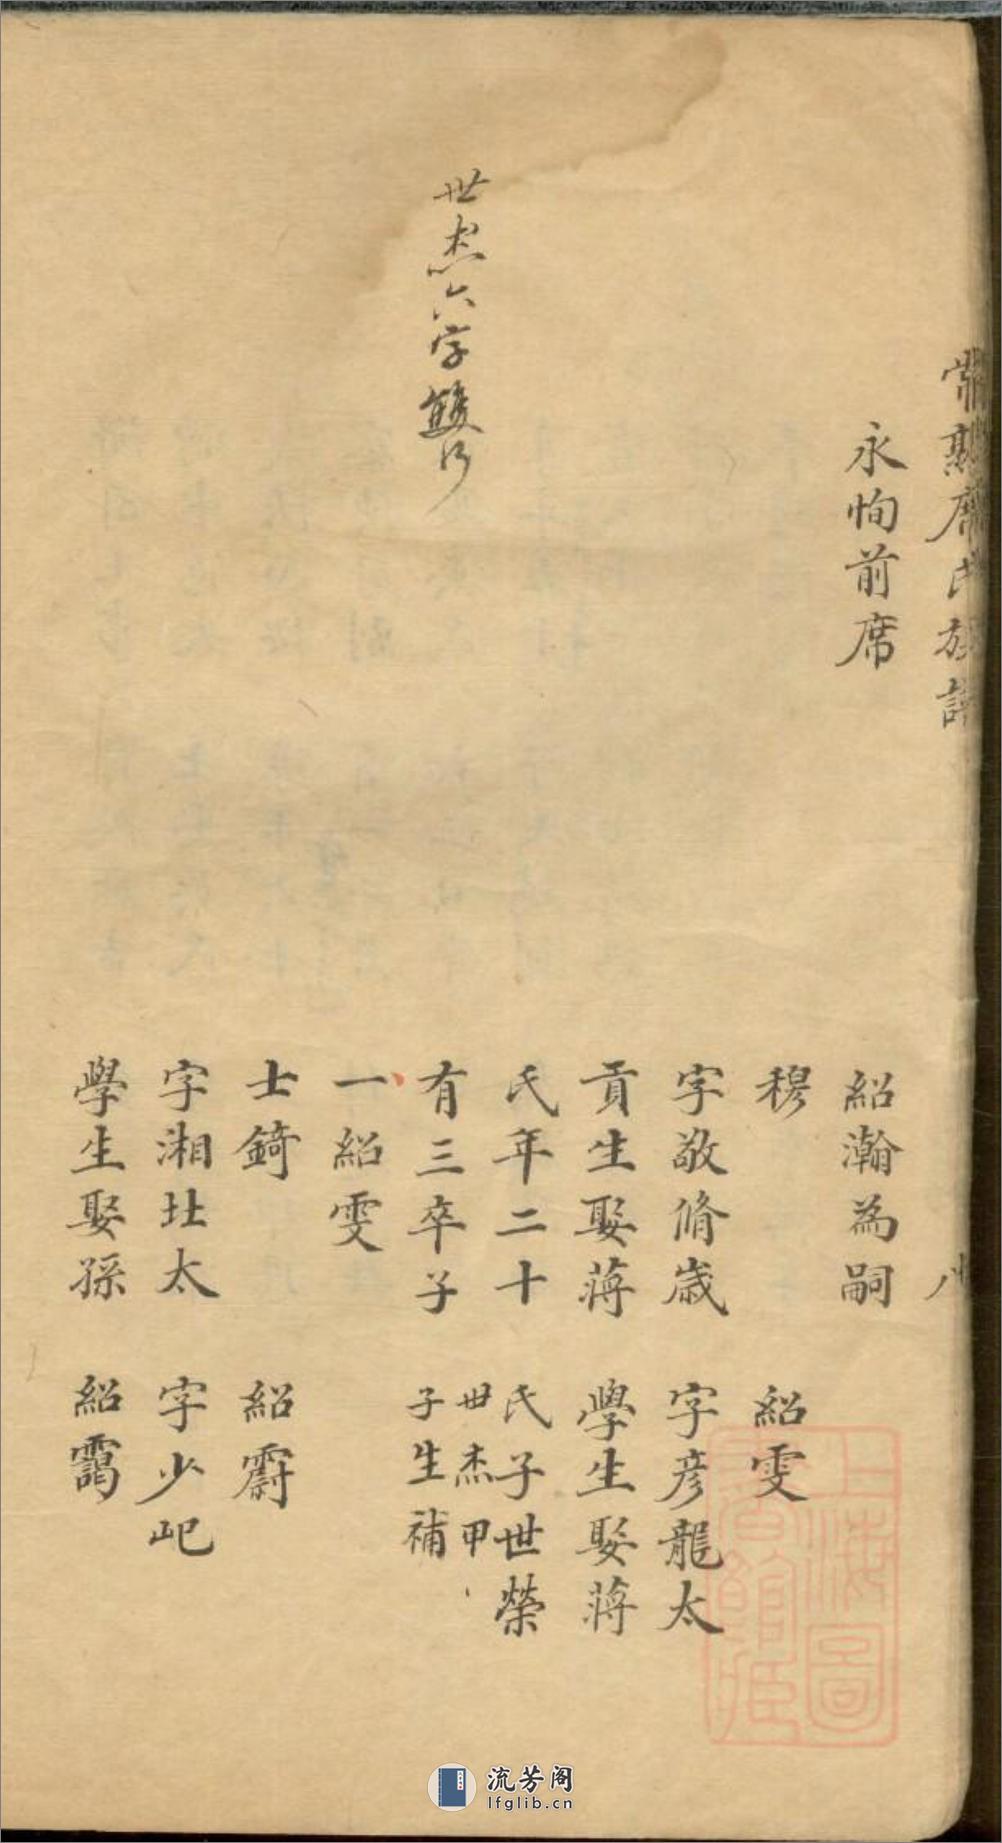 常熟席氏族譜
八
永恂前席
世杰六字雙行
紹瀚為嗣
穆
字敬脩歲
貢生娶蔣
氏年二十
有三卒子
一紹雯
士錡
字湘北太
學生娶孫
紹雯
字彦龍太
學生娶蔣
氏子世榮
世杰甲
子生補
紹霨
字少屺
紹靄
上海圖
書館藏
流芳阁
lfglib.cn